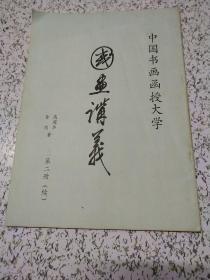 中国书画函授大学
国画讲义
第二册（续）